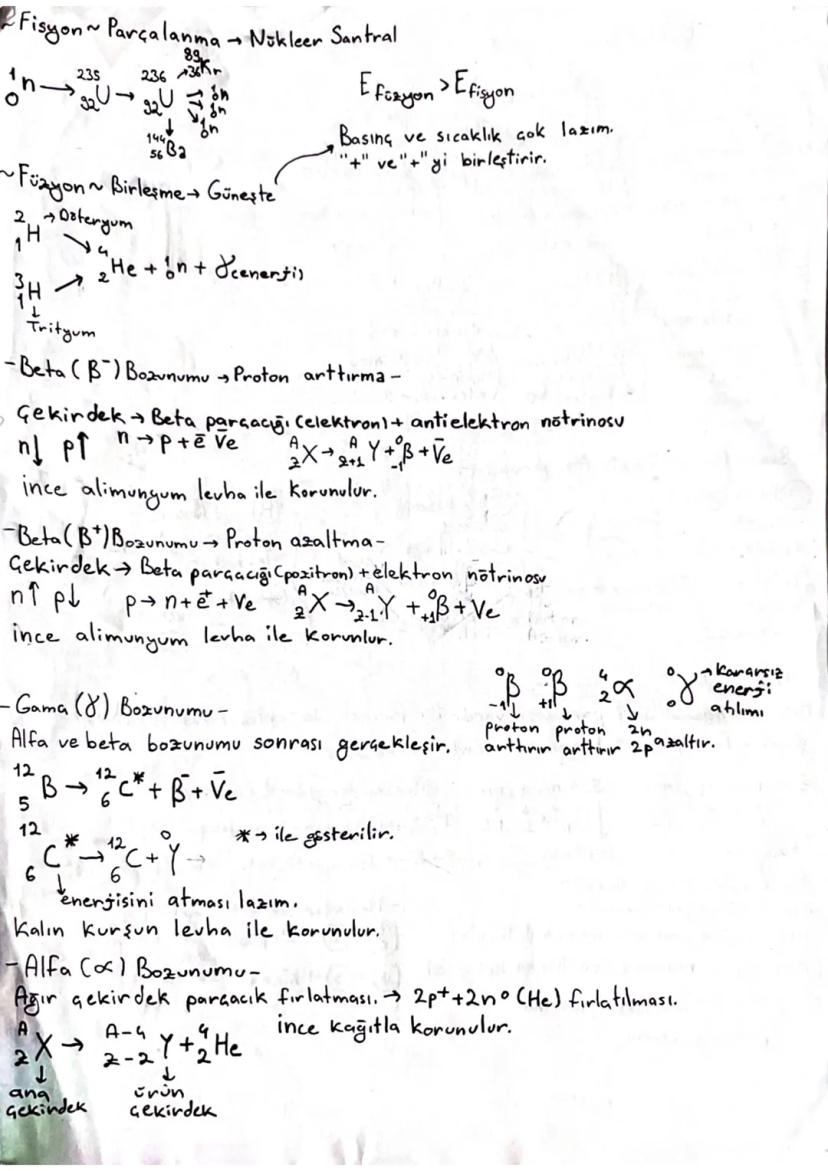 ~Fisyon~ Parçalanma → Nükleer Santral
¹₀n → ²³⁵₉₂U → ²³⁶₉₂U → ⁸⁹₃₆Kr
→ ¹₀n
→ ¹₀n
→ ¹₀n
↓ ¹⁴⁴₅₆Ba
E füzyon > E fisyon
Basınç ve sıcaklık çok lazım.
"+" ve "+" yi birleştirir.
~Füzyon~ Birleşme → Güneşte
²₁H → Döteryum
⁴₂He + ¹₀n + γ(enerji)
³₁H
↓
Trityum
-Beta (β⁻) Bozunumu → Proton arttırma-
Çekirdek → Beta parçacığı (elektron) + antielektron nötrinosu
n↓ p↑ n → p + e⁻ V̄e ᴬ_Z X → ᴬ_Z+1 Y + ⁰₋₁β + V̄e
ince alimunyum levha ile korunulur.
-Beta (β⁺) Bozunumu → Proton azaltma-
Çekirdek → Beta parçacığı (pozitron) + elektron nötrinosu
n↑ p↓ p → n + e⁺ + Ve ᴬ_Z X → ᴬ_Z-1 Y + ⁰₊₁β + Ve
ince alimunyum levha ile korunlur.
⁰₋₁β ⁰₊₁β ⁴₂α ⁰₀γ → Kararsız enerji atılımı
↓ proton arttırır
↓ proton arttırır
↓ 2n 2p azaltır.
-Gama (γ) Bozunumu-
Alfa ve beta bozunumu sonrası gerçekleşir.
¹²₅B → ¹²₆C* + β⁻ + V̄e
¹²₆C* → ¹²₆C + ⁰γ →
* → ile gösterilir.
↓ enerjisini atması lazım.
Kalın kurşun levha ile korunulur.
-Alfa (α) Bozunumu-
Ağır çekirdek parçacık fırlatması. → 2p⁺+2n⁰ (He) fırlatılması.
ince kağıtla korunulur.
ᴬ_Z X → ᴬ⁻⁴_Z-2 Y + ⁴₂He
↓ ana çekirdek
↓ ürün çekirdek